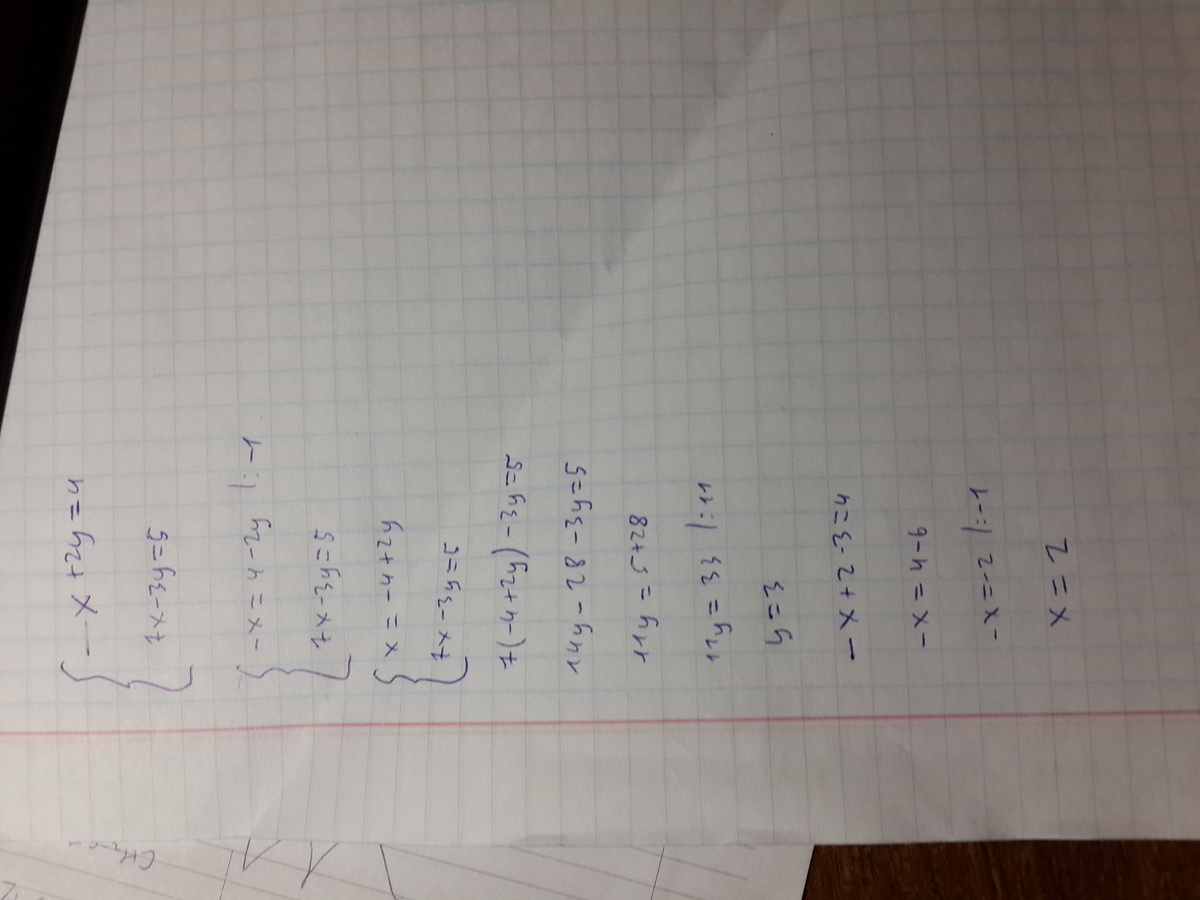 { -x+2y=4
7x-3y=5
{ -x=4-2y |:-1
7x-3y=5
{ x=-4+2y
7x-3y=5
7(-4+2y)-3y=5
14y-28-3y=5
11y=5+28
11y=33 |:11
y=3
-x+2·3=4
-x=4-6
-x=-2 |:-1
x=2